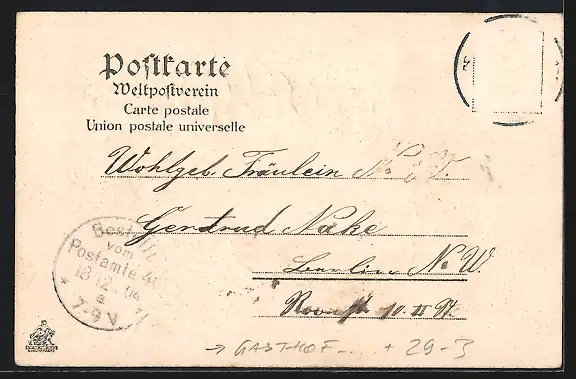 Postkarte
Weltpostverein
Carte postale
Union postale universelle
Wohlgeb. Fräulein
Gertrud Nake
Berlin N.W.
10. II
Bestellt
vom
Postamte 40
18.12.04
7-9 V
→ GASTHOF... + 29-3